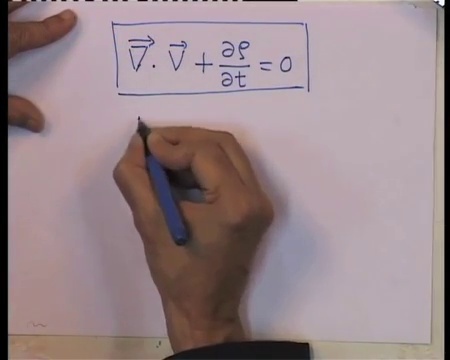 ∇⃗. V⃗ + ∂ρ/∂t = 0